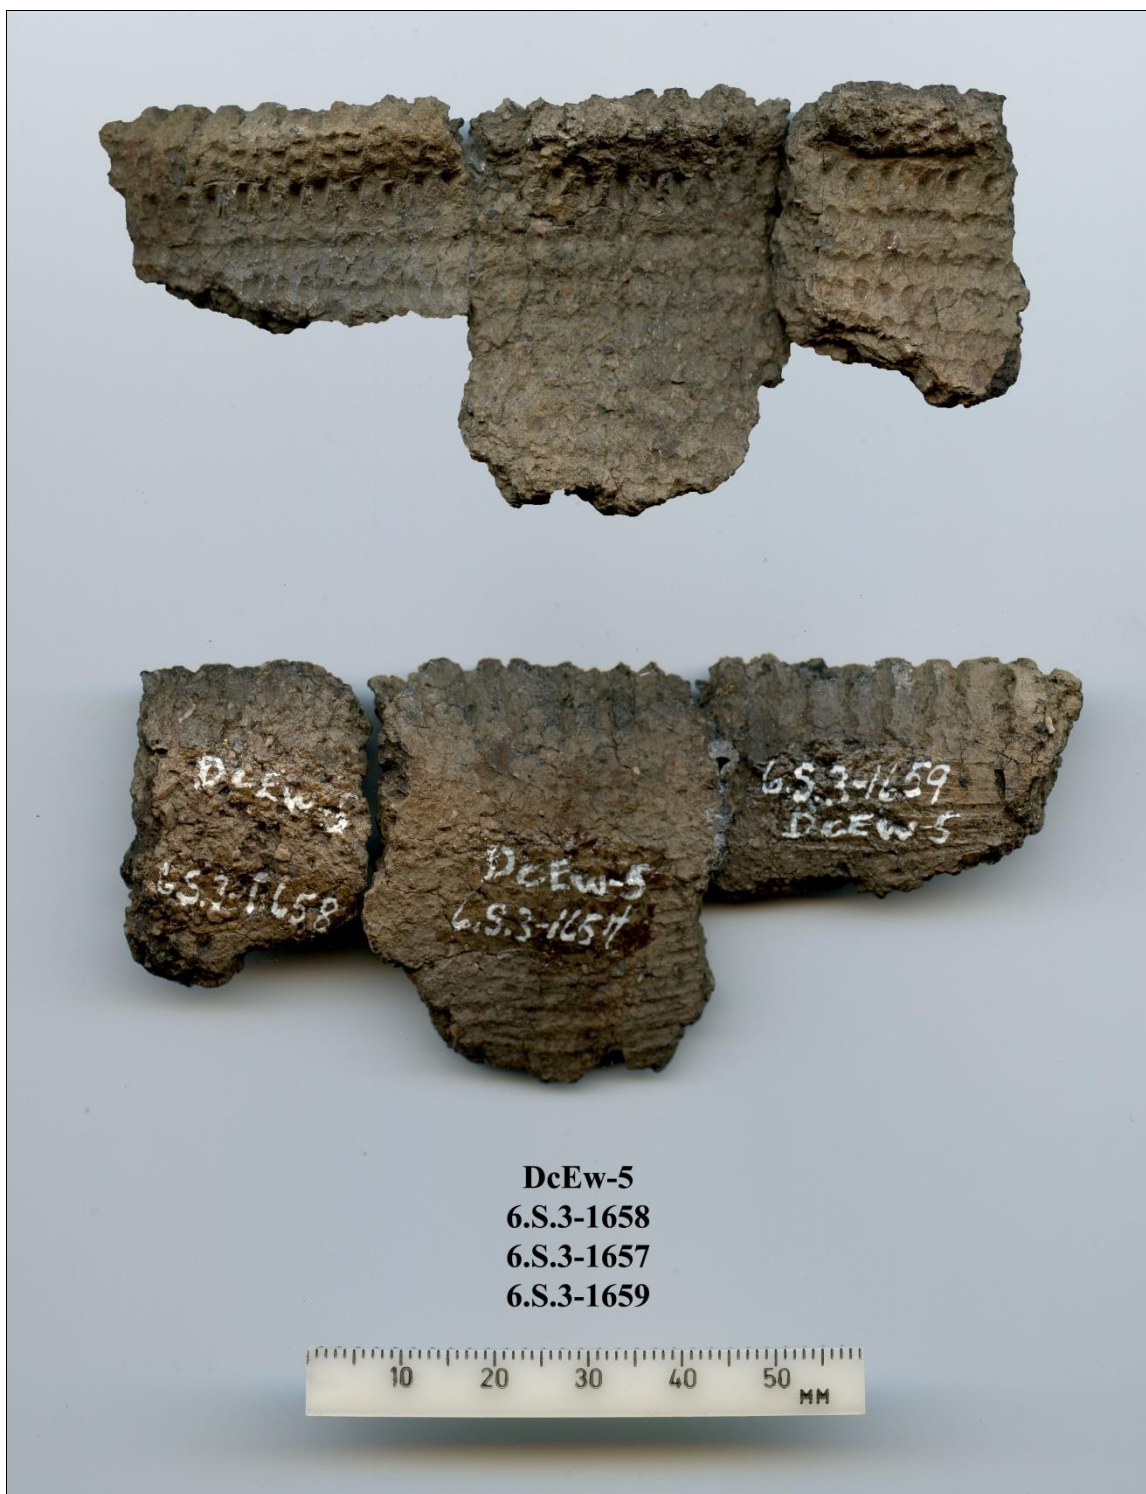 DcEw-5
6.S.3-1658
DcEw-5
6.S.3-1657
6.S.3-1659
DcEw-5
DcEw-5
6.S.3-1658
6.S.3-1657
6.S.3-1659
10 20 30 40 50 MM